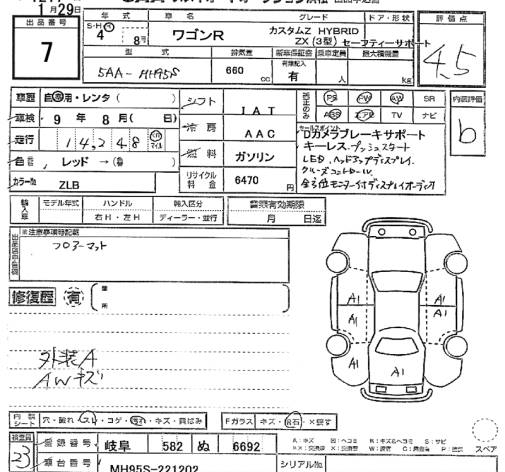 月29日
出品番号
7
年式 車名 グレード ドア・形状 評価点
S・H
4年 8月 ワゴンR カスタムZ HYBRID
ZX (3型) セーフティーサポート
4.5
型式 排気量 新車保証書 乗車定員 最大積載量
5AA-MH95S 660 cc 有 人 kg
車歴 自家用・レンタ( )
シフト IAT
PS PW AW SR
TV ナビ
内装評価
b
車検 9年 8月( 日)
冷房 AAC
セールスポイント
Dカメラブレーキサポート
キーレス、プッシュスタート
LED、ヘッドアップディスプレイ、
クルーズコントロール
全方位モニター付ディスプレイオーディオ
走行 14,248
燃料 ガソリン
色 レッド→( )
リサイクル料金 6470円
カラーNo ZLB
輸入車 モデル年式 ハンドル 輸入区分
右H・左H ディーラー・並行
月 日迄
※注意事項記載
フロアーマット
修復歴 有
箇所
外装A
AWキズ
A1
A1
A1
A1
A1
内装シート 穴・スレ・コゲ・汚れ・キズ・
Fガラス キズ・飛石・
検査員
23
登録番号 岐阜 582 ぬ 6692
A:キズ
スペア
車台番号 MH95S-221202
シリアルNo.